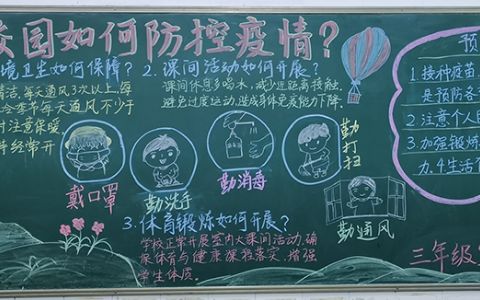 校园如何防控疫情?
境卫生如何保障?
每天通风3次以上,每
季节每天通风不少于
时注意保暖,
经常开
2. 课间活动如何开展?
课间休息多喝水,减少近距离接触,
避免过度运动,造成身体免疫能力下降。
戴口罩
勤洗手
勤消毒
勤打扫
勤通风
3. 体育锻炼如何开展?
学校正常开展室内大课间活动,确
保体育与健康课程落实,增强
学生体质。
预
1 接种疫苗,
是预防各
2 注意个人
3. 加强锻炼
力.4生活
三年级